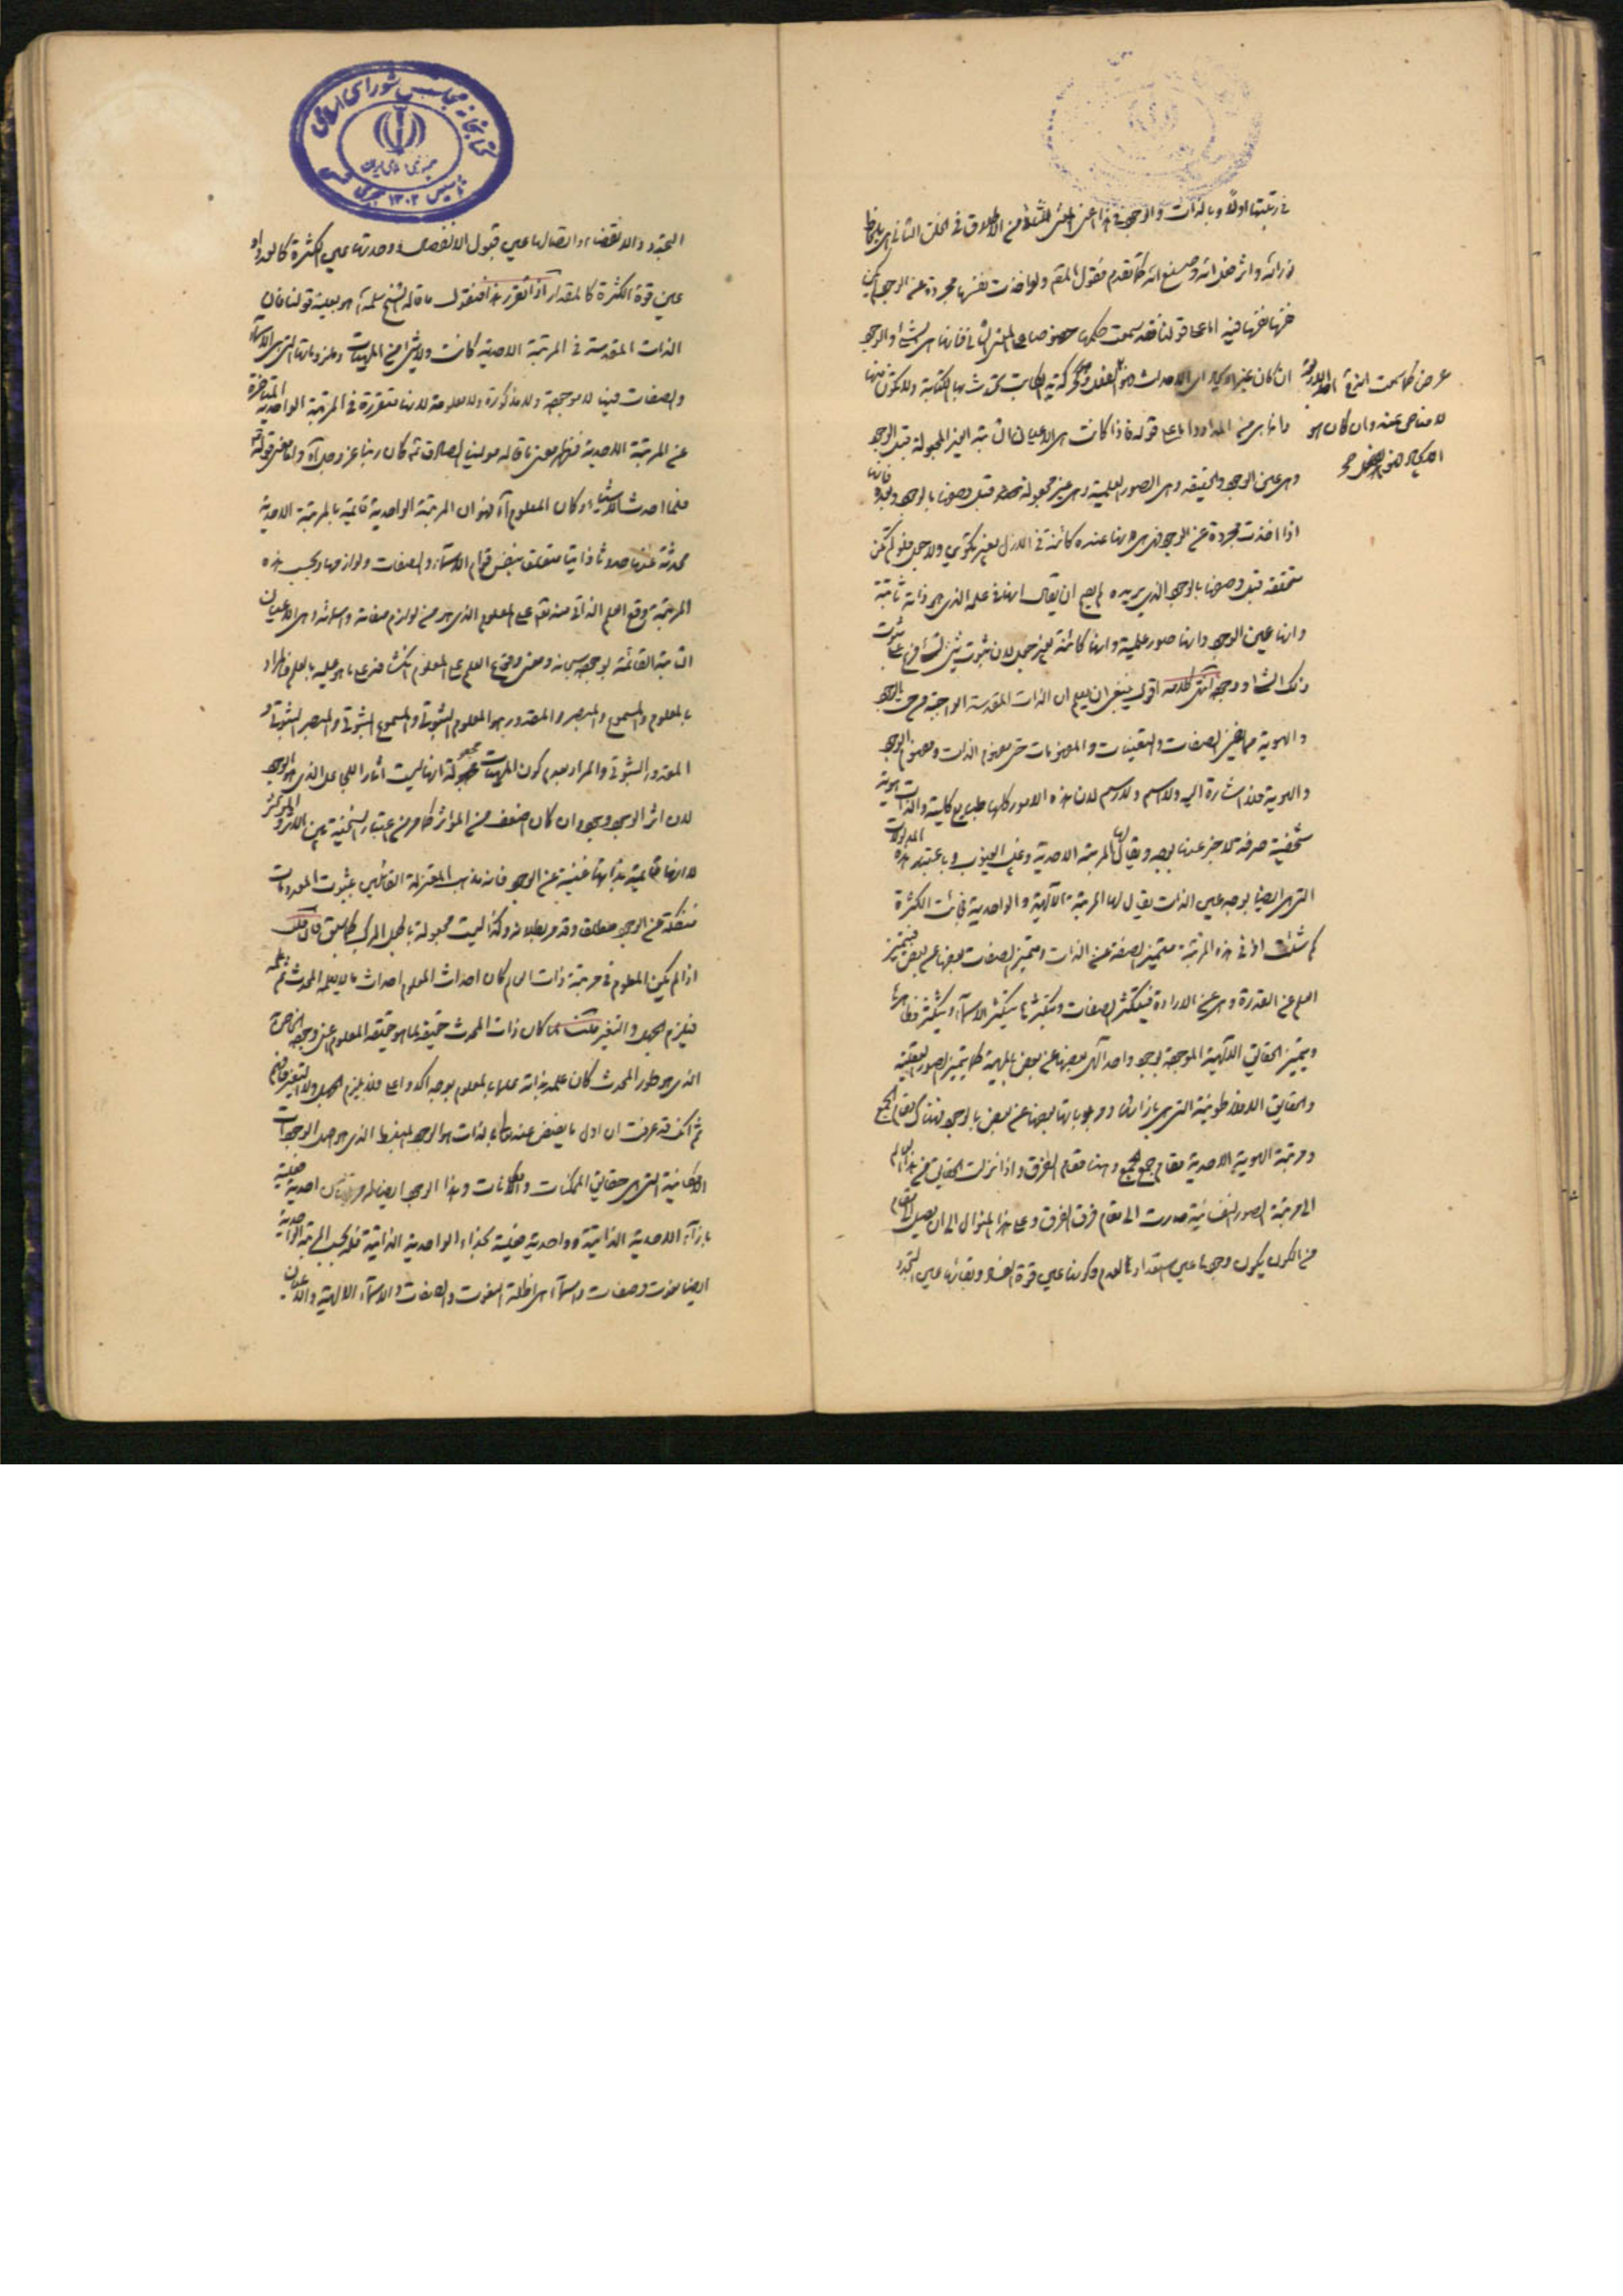 في رتبتها اولا وبالذات والوجود في هذا اعني المعنى الثاني من الاطلاق في الخلق الثاني اي بلحاظ
وراثه واثر فعل الله وصنع الله كما تقدم فنقول المقم ولو اخذت نفسها مجردة عن الوجود
فيه اما على قولنا فقد سمعت حكمها خصوصا على المعنى الثاني فانها هي والوجود
ان كان غير الايجاد اي الاحداث كحركة يد الكاتب تحدث بها الكتابة ولا تكون منها
وانما هي من المداد واما على قوله فاذا كانت هي الاعيان الثابتة الغير المجعولة قبل الوجود
وهي عين الوجود والحقيقة وهي الصور العلمية وهي غير مجعولة قبل وصفها بالوجود فانها
اذا اخذت مجردة عن الوجود هي عنده كائنة في الازل بغير تكوين ولا جعل فلو لم تكن
متحققة قبل وصفها بالوجود الذي يريده لم يصح ان يقال انها في علمه الذي هو ذاته ثابتة
وانها عين الوجود وانها صور علمية وانها كائنة بغير جعل لان ثبوت شئ لشئ فرع على ثبوت
ذلك الشئ ووجوده انتهى كلامه اقول ينبغي ان يعلم ان الذات المقدسة الواجبة من حيث الوجود
والهوية مع عزل الصفات والتعينات والمفهومات حتى مفهوم الذات ومفهوم الوجود
والهوية فلا اشارة اليه ولا اسم ولا رسم لان هذه الامور كلها طبايع كلية والذات هوية
شخصية صرفة لا خبر عنها بوجه ويقال لها المرتبة الاحدية وغيب الغيوب وباعتبار هذه المدلولات
التي هي ايضا بوجه عين الذات يقال لها المرتبة الآلهية والواحدية فجائت الكثرة
كم شئت اذ في هذه المرتبة متميز الصفة عن الذات ومتميز الصفات بعضها عن بعض فيتميز
العلم عن القدرة وهي عن الارادة فيتكثر الصفات وبتكثرها يتكثر الاسماء ويتكثر مظاهرها
ويتميز الحقايق الالهية الموجودة بوجود واحد الهي بعضها عن بعض بالمهية كما يتميز الصور العقلية
والحقايق الافلاطونية التي هي بازائها ومربوباتها بعضها عن بعض بالوجود فهناك مقام الجمع
ومرتبة الهوية الاحدية مقام جمع الجمع وهنا مقام الفرق واذا نزلت الحقايق من هذا العالم
الى مرتبة الصور النفسانية صارت الى مقام فرق الفرق وعلى هذا المنوال الى ان يصل الى مقام
من الكون يكون وجودها عين استعدادها للعدم وكونها عين قوة الفساد وبقائها عين التجدد
عرض كما سمت الذي
لا مناص عنه وان كان هو
الايجاد
التجدد والانقضاء واتصالها عين قبول الانفصال ووحدتها عين الكثرة كالعدد او
عين قوة الكثرة كالمقدار اذا تقرر هذا فنقول ما قاله الشيخ سلمه الله هو بعينه قولنا فان
الذات المقدسة في المرتبة الاحدية كانت ولا شئ من المهيات وملزوماتها التي هي الاسماء
والصفات فيها لا موجودة ولا مذكورة ولا معلومة لانها متقررة في المرتبة الواحدية المتاخرة
عن المرتبة الاحدية فظهر معنى ما قاله مولينا الصادق ثم كان ربنا عز وجل آه واما معنى قوله
فلما احدث الاشياء وكان المعلوم آه فهو ان المرتبة الواحدية قائمة بالمرتبة الاحدية
محدثة عنها حدوثا ذاتيا متعلق بنفس قوام الاسماء والصفات ولوازمها وبحسب هذه
المرتبة وقع العلم الذاتي منه تع على المعلوم الذي هو من لوازم صفاته واسمائه اي الاعيان
الثابتة القائمة بوجوده سبحانه ومعنى وقوع العلم على المعلوم انكشافه على ما هو عليه بالعلم فالمراد
بالمعلوم والمسموع والمبصر والمقدور هو المعلوم الثبوتي والمسموع الثبوتي والمبصر الثبوتي و
المقدور الثبوتي والمراد بعدم كون المهيات مجعولة انها ليست اثار الجاعل الذي هو الوجود
لان اثر الوجود وجود وان كان اضعف من المؤثر كما مر من اعتبار السنخية بين الاثر والمؤثر
لا انها قائمة بذاتها غنية عن الوجود فانه مذهب المعتزلة القائلين بثبوت المعدومات
منفكة عن الوجود مطلقا وقد مر بطلانه وكذا ليست مجعولة بالجعل المركب كما سبق فان قلت
اذا لم يكن المعلوم في مرتبة ذات العالم كان احداث المعلوم احداث ما لا يعلمه المحدث ثم علمه
فيلزم الجهل والتغير قلت لما كان ذات المحدث حقيقة لما هو حقيقة المعلوم اعني وجوده الخاص
الذي هو طور المحدث كان علمه بذاته علما بالمعلوم بوجه اكد واعلى فلا يلزم الجهل ولا التغير فافهم
ثم انك قد عرفت ان اول ما يفيض عنه تعالى بالذات هو الوجود المنبسط الذي هو اصل الوجودات
الامكانية التي هي حقايق الممكنات والكائنات وهذا الوجود ايضا له مرتبتان احدية فعلية
بازاء الاحدية الذاتية وواحدية فعلية بحذاء الواحدية الذاتية فله بحسب المرتبة الواحدية
ايضا نعوت وصفات واسماء هي اظلة النعوت والصفات والاسماء الالهية والاعيان
کتابخانه مجلس شورای اسلامی
جمهوری اسلامی ایران
تاسیس ۱۳۰۲ هجری